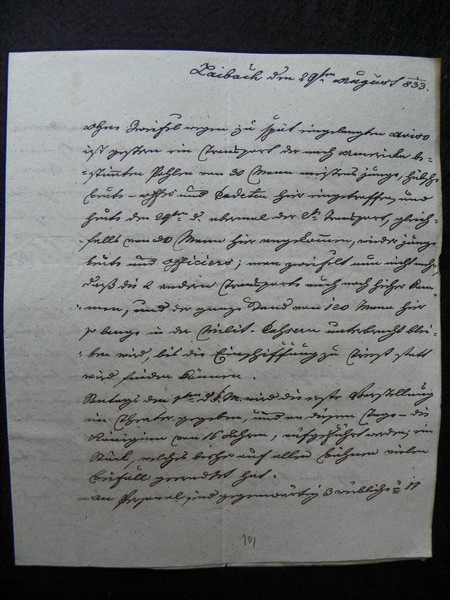 Laibach den 29ten August 833.
Ohne Zweifel wegen zu spät eingelangten Aviso
ist gestern ein Transport der nach Amerika be-
stimmten Pohlen von 30 Mann meistens junge, hübsche
Leute – und Cadeten hier eingetroffen, und
heute den 29ten d. abermal der 2te Transport, gleich-
falls von 30 Mann hier angekommen, wieder junge
Leute und Officiers; man zweifelt nun nicht mehr,
daß die 2 andern Transporte auch noch hieher kom-
men, und der ganze Stand von 120 Mann hier
so lange in der Milit. Casern unterbracht blei-
ben wird, bis die Einschiffung zu Triest statt
wird finden können.
Sontags den 1ten d. k. M. wird die erste Vorstellung
im Theater gegeben, und an diesem Tage – die
Königinn von 16 Jahren, aufgeführt werden; ein
Stück, welches bisher auf allen Bühnen vielen
Beifall geerndtet hat.
An Personal, sind gegenwärtig 3 weibliche u 11
101